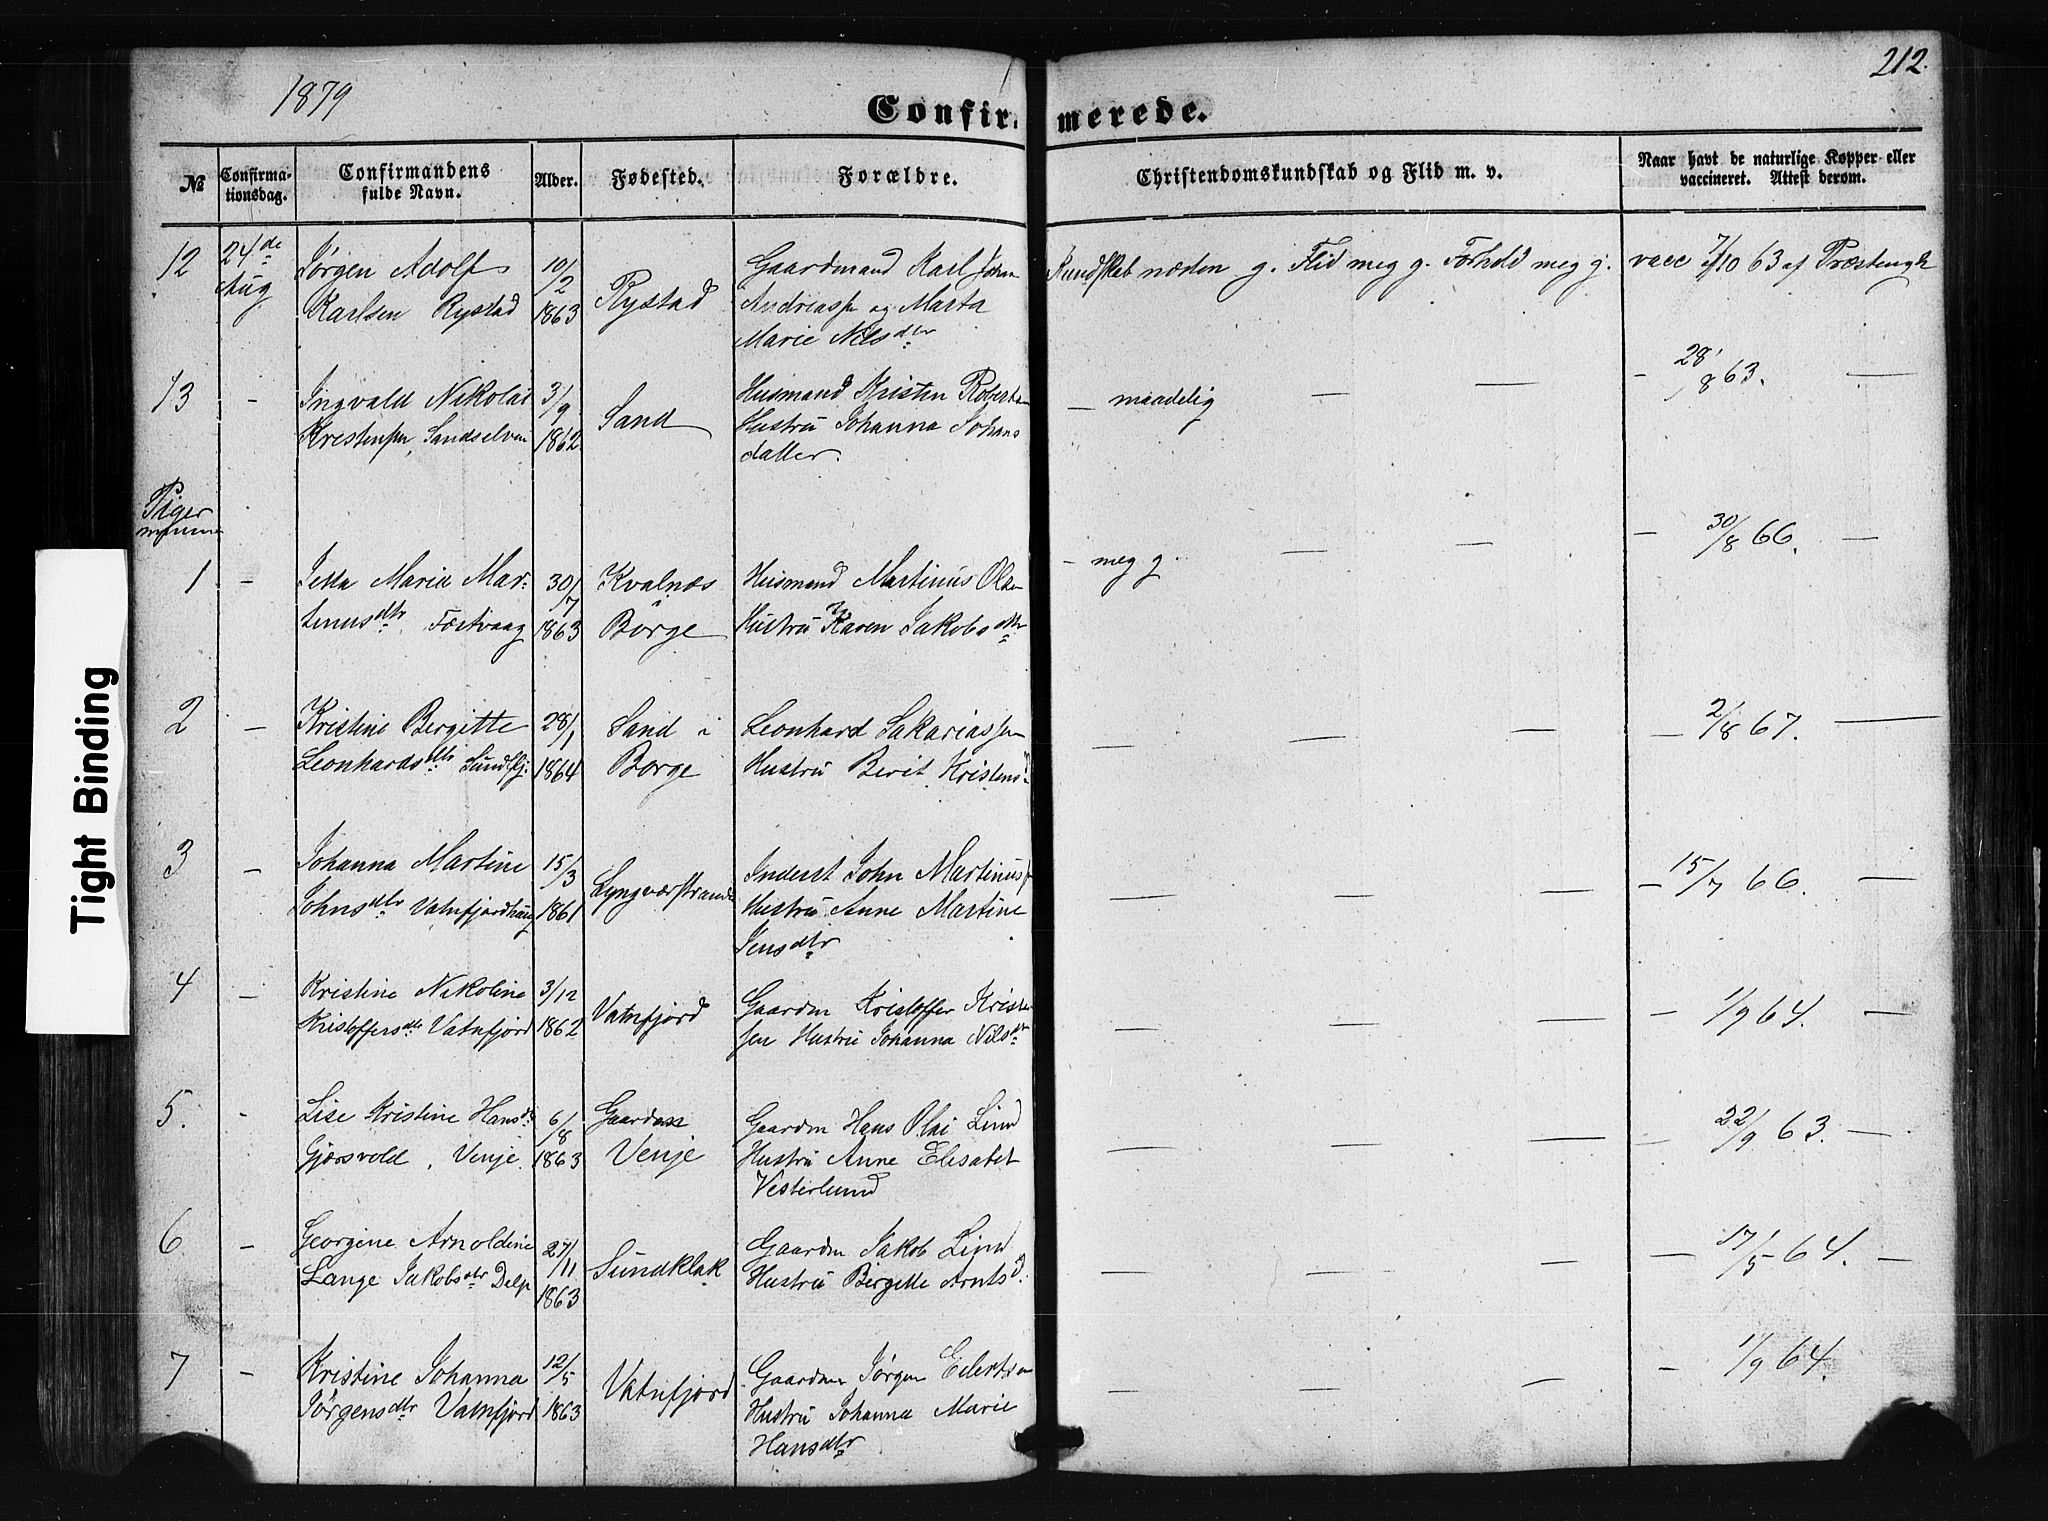 1879
212.
Confirmerede.
No
Confirma-
tionsdag.
Confirmandens
fulde Navn.
Alder.
Fødested.
Forældre.
Christendomskundskab og Flid m. v.
Naar havt de naturlige Kopper eller
vaccineret. Attest derom.
12 24de Jørgen Adolf 10/2 Rystad Gaardmand Karl John Kundskab næsten g. Flid meg g. Forhold meg g. vacc 7/10 63 af
Aug Karlsen Rystad 1863 og Marta
Marie Nilsdtr
13 - Ingvald Nikolai 3/9 Sand Husmand Kristen - maadelig — — - 28/8 63. —
Kristensen, Sandselven 1862. Hustru Johanna Johans
datter.
Piger
1 - Jetta Maria Mar- 30/7 Kvalnæs Husmand Martinus Olsen - meg g. — — - 30/8 66. —
tinusdtr. Føstvaag 1863 Borge Hustru Karen Jakobsdtr
2 - Kristine Bergitte 28/1 Sand i Leonhard Sakariassen — — — - 2/8 67. —
Leonhardsdtr 1864 Borge Hustru Berit Kristensd
3 - Johanna Martine 15/3 Lyngværstrand Inderst John Martinuss — — — - 15/7 66. —
Johnsdtr Vatnfjordhaug 1861 Hustru Anne Martine
Jensdtr
4 - Kristine Nikoline 3/12 Vatnfjord Gaardm Kristoffer Kristen — — — - 1/9 64. —
Kristoffersdtr Vatnfjord 1862 sen Hustru Johanna Nilsdtr
5. - Lise Kristine Hansdtr 6/8 Gaarden Gaardm Hans Olai Lind — — — - 22/9 63. —
Gjærsvold, Venje. 1863 Venje Hustru Anne Elisabet
Vesterlund
6 - Georgine Arnoldine 27/11 Sundklak Gaardm Jakob Lind — — — - 17/5 64. —
Lange Jakobsdtr Delp 1863 Hustru Birgitte Arntsd.
7 - Kristine Johanna 12/5 Vatnfjord Gaardm Jørgen Eilertsen — — — - 1/9 64.
Jørgensdtr Vatnfjord 1863 Hustru Johanna Marie
Hansdtr
Tight Binding